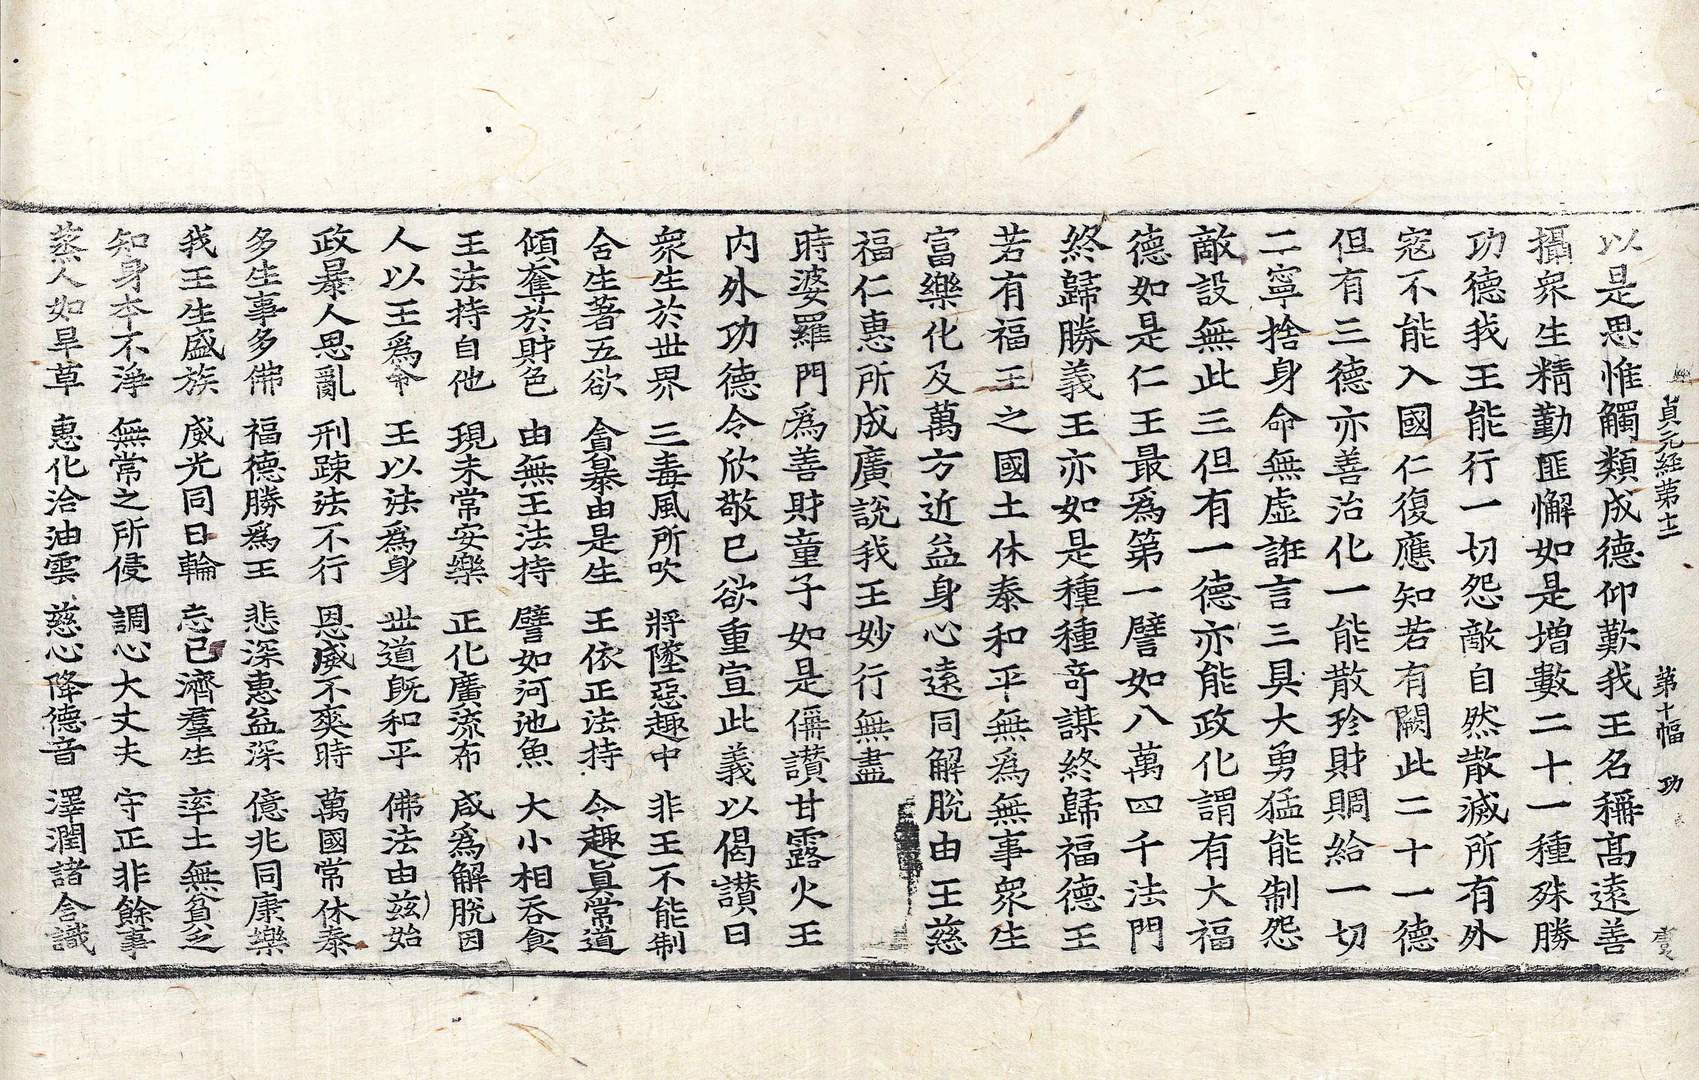 貞元経第十二 第十幅 功
以是思惟觸類成德仰歎我王名稱高遠善
攝衆生精勤匪懈如是增數二十一種殊勝
功德我王能行一切怨敵自然散滅所有外
寇不能入國仁復應知若有闕此二十一德
但有三德亦善治化一能散珍財賙給一切
二寧捨身命無虛誑言三具大勇猛能制怨
敵設無此三但有一德亦能政化謂有大福
德如是仁王最爲第一譬如八萬四千法門
終歸勝義王亦如是種種竒謀終歸福德王
若有福王之國土休泰和平無爲無事衆生
富樂化及萬方近益身心遠同解脫由王慈
福仁惠所成廣說我王妙行無盡
時婆羅門爲善財童子如是稱讃甘露火王
内外功德令欣敬已欲重宣此義以偈讃曰
衆生於世界 三毒風所吹 將墜惡趣中 非王不能制
含生著五欲 貪暴由是生 王依正法持 令趣眞常道
傾奪於財色 由無王法持 譬如河池魚 大小相吞食
王法持自他 現未常安樂 正化廣流布 咸爲解脫因
人以王爲命 王以法爲身 世道旣和平 佛法由兹始
政暴人思亂 刑踈法不行 恩威不爽時 萬國常休泰
多生事多佛 福德勝爲王 悲深惠益深 億兆同康樂
我王生盛族 威光同日輪 忘已濟羣生 率土無貧乏
知身本不淨 無常之所侵 調心大丈夫 守正非餘事
蒸人如旱草 惠化洽油雲 慈心降德音 澤潤諸含識